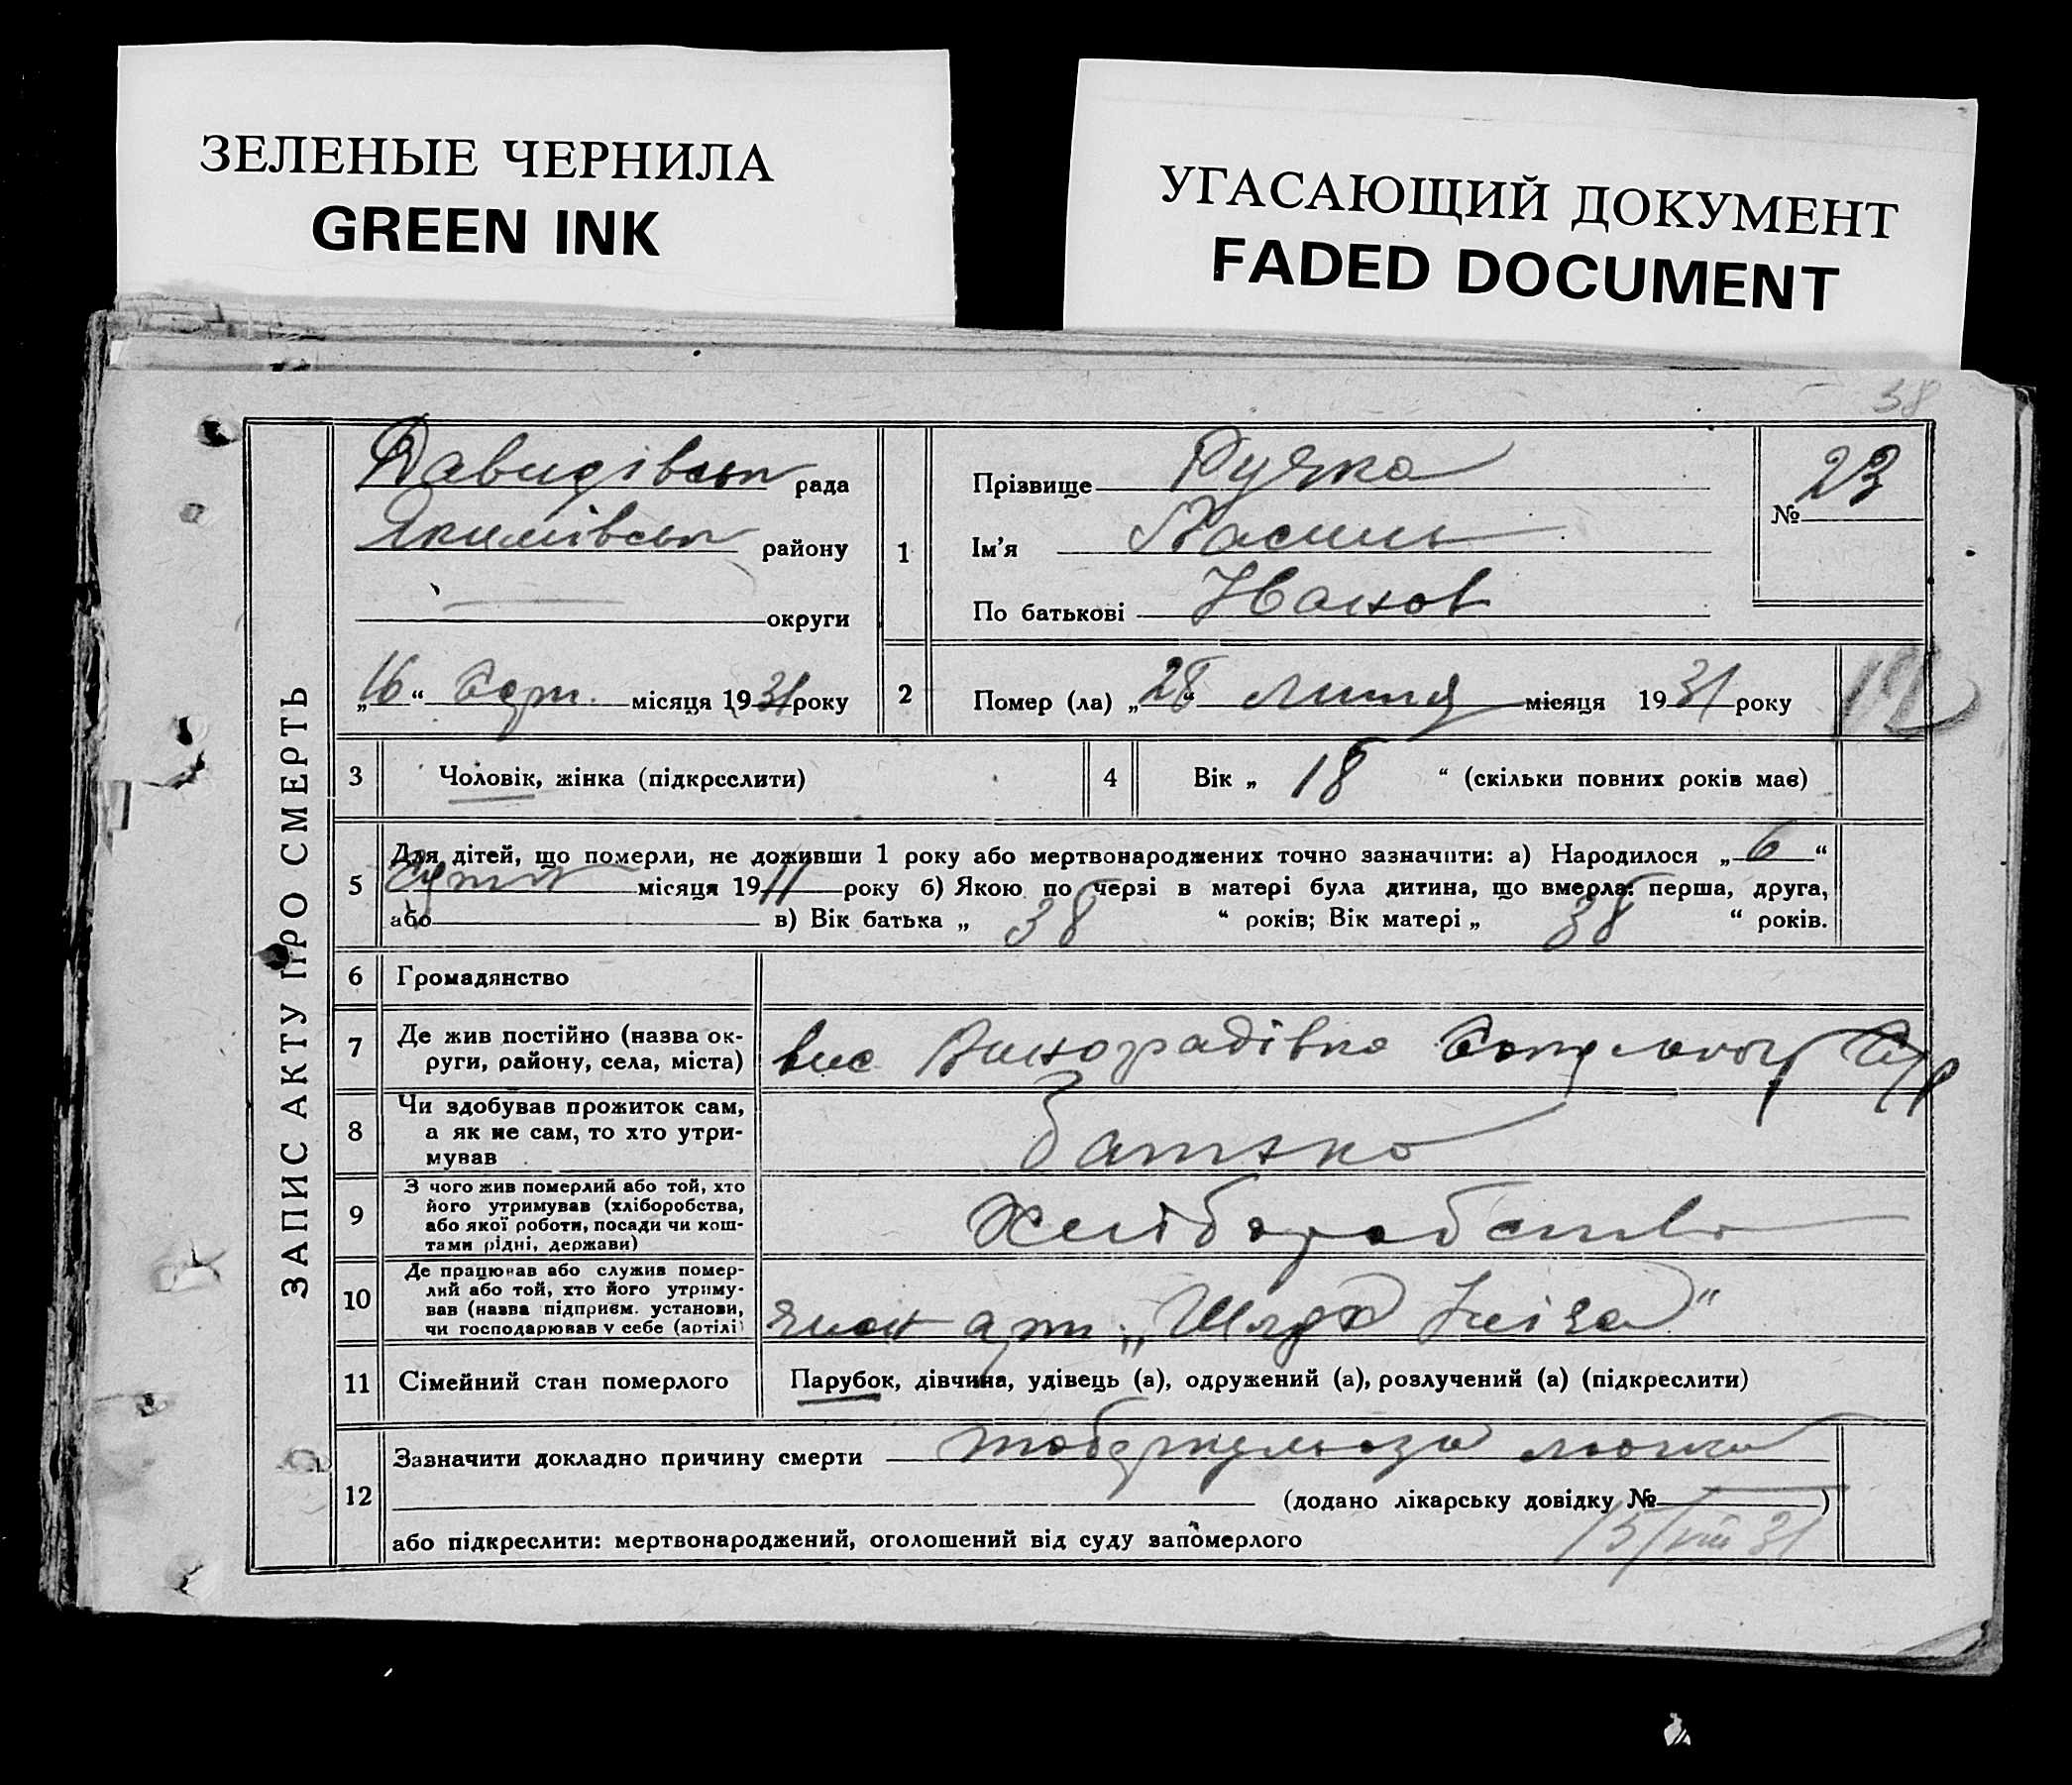 ЗЕЛЕНЫЕ ЧЕРНИЛА
GREEN INK
УГАСАЮЩИЙ ДОКУМЕНТ
FADED DOCUMENT
38
ЗАПИС АКТУ ПРО СМЕРТЬ
Давидівськ рада
Якимівськ району
округи
„16“ Серп. місяця 1931 року
1
Прізвище Ручка
Ім'я Василь
По батькові Іванов
№ 23
2
Помер (ла) „28“ Липня місяця 1931 року
12
3
Чоловік, жінка (підкреслити)
4
Вік „ 18 “ (скільки повних років має)
5
Для дітей, що померли, не доживши 1 року або мертвонароджених точно зазначити: а) Народилося „6“
місяця 1911 року б) Якою по черзі в матері була дитина, що вмерла: перша, друга,
або в) Вік батька „ 38 “ років; Вік матері „ 38 “ років.
6
Громадянство
7
Де жив постійно (назва ок-
руги, району, села, міста)
вис Виноградівка
8
Чи здобував прожиток сам,
а як не сам, то хто утри-
мував
батько
9
З чого жив померлий або той, хто
його утримував (хліборобства,
або якої роботи, посади чи кош-
тами рідні, держави)
Хліборобство
10
Де працював або служив помер-
лий або той, хто його утриму-
вав (назва підприєм. установи,
чи господарював у себе (артілі)
член арт. „Шлях Іліча“
11
Сімейний стан померлого
Парубок, дівчина, удівець (а), одружений (а), розлучений (а) (підкреслити)
12
Зазначити докладно причину смерти
(додано лікарську довідку № )
або підкреслити: мертвонароджений, оголошений від суду запомерлого
15/VIII 31